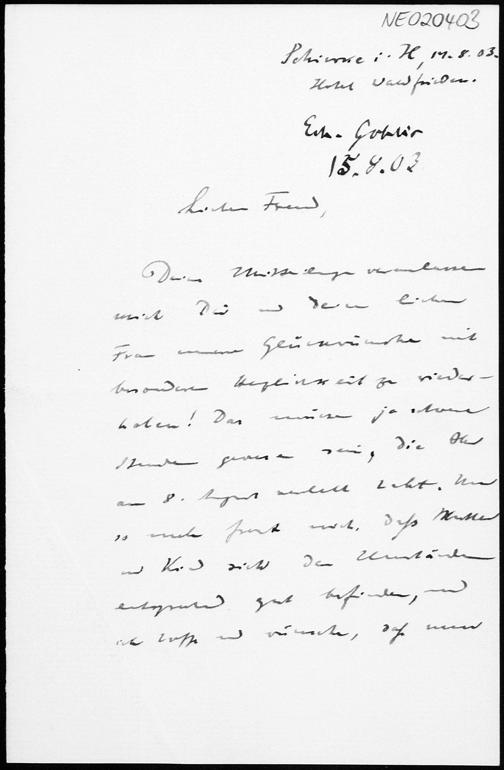 NE020403
Schierke i. H, 14.8.03.
Hotel Waldfrieden.
15.8.03
Lieber Freund,
Deine Mitteilungen veranlassen
mich Dir und Deiner lieben
Frau meine Glückwünsche mit
besonderer Herzlichkeit zu wieder-
holen! Das müssen ja schwere
Stunden gewesen sein, die Ihr
am 8. August verlebt habt. Um
so mehr freut mich, daß Mutter
und Kind sich den Umständen
entsprechend gut befinden, und
ich hoffe und wünsche, daß